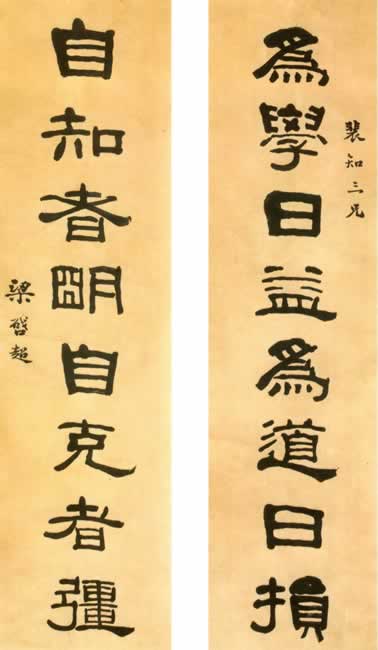 裴知三兄
爲學日益爲道日損
自知者朙自克者彊
梁啓超